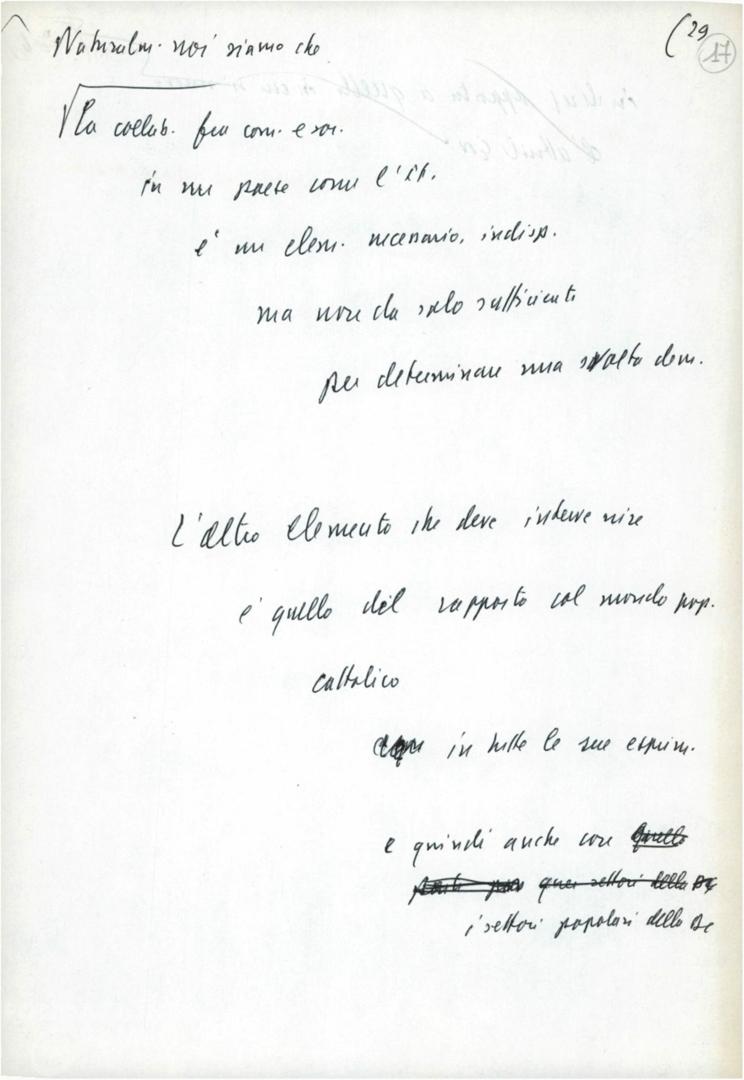 (29
17
Naturalm. noi siamo che
La collab. fra com. e soc.
in un paese come l'it.
e' un elem. necessario, indisp.
ma non da solo sufficiente
per determinare una svolta dem.
L'altro elemento che deve intervenire
e' quello del rapporto col mondo pop.
cattolico
in tutte le sue esprim.
e quindi anche con quello
quei settori della DC
i settori popolari della DC